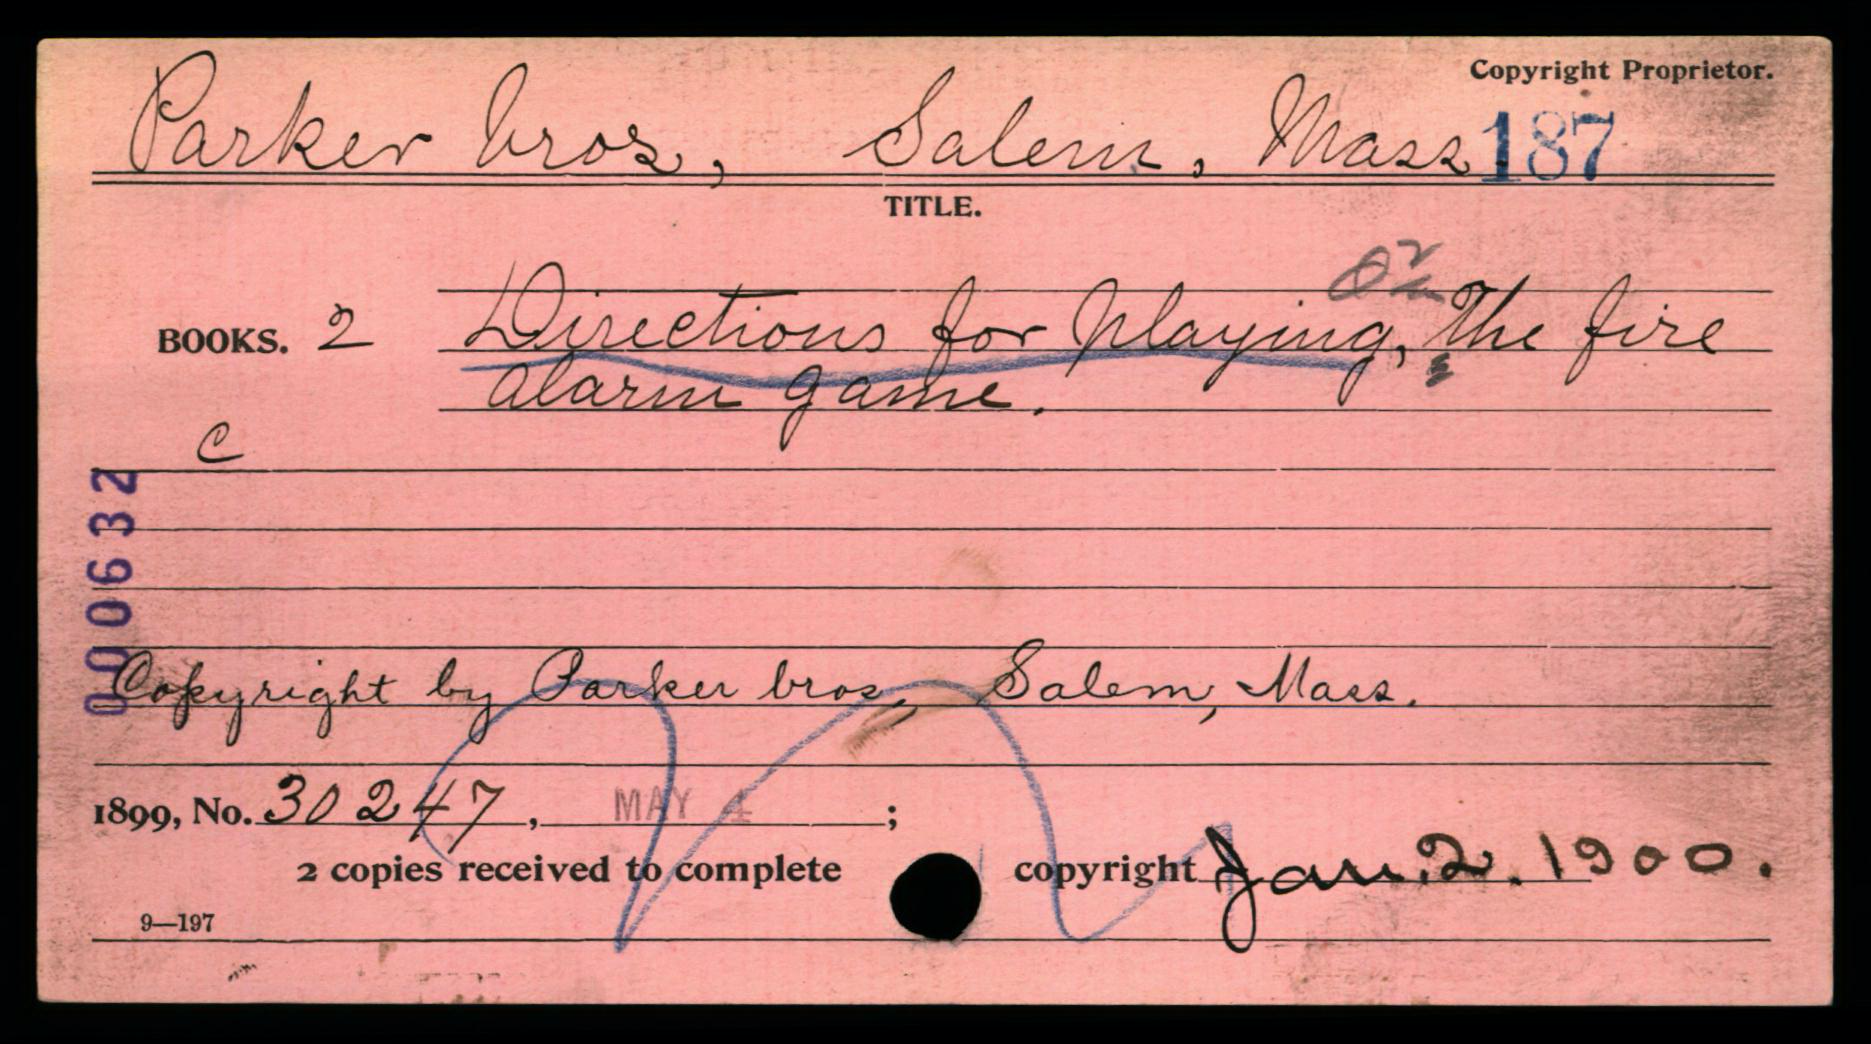 Copyright Proprietor.
Parker bros, Salem, Mass. 187
TITLE.
BOOKS. 2 Directions for playing, The fire
alarm game.
C
000632
Copyright by Parker bros, Salem, Mass.
1899, No. 30247, MAY 4;
2 copies received to complete copyright Jan. 2. 1900.
9—197